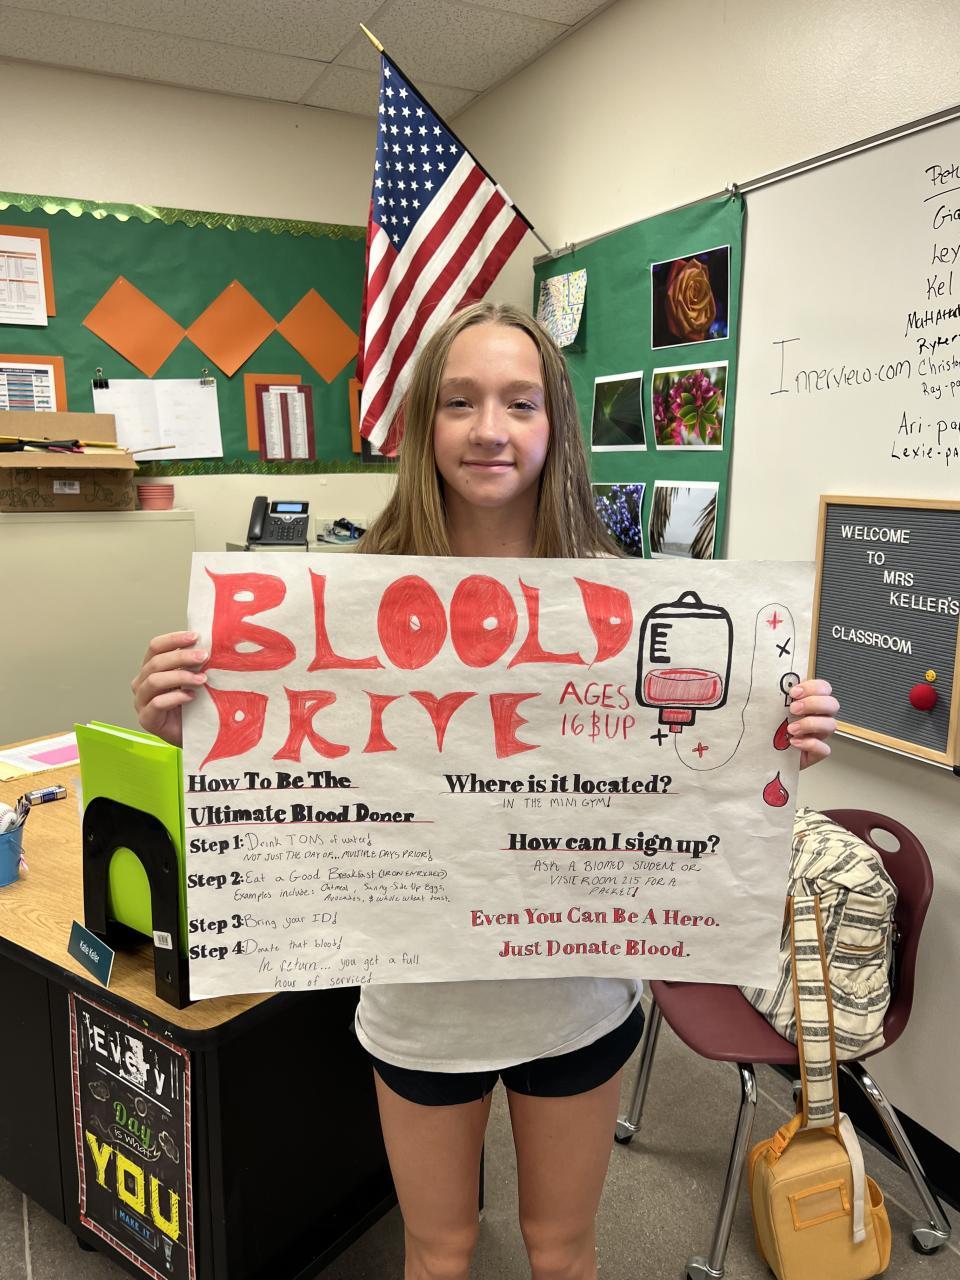 BLOOD
DRIVE
AGES
16 & UP
How To Be The
Ultimate Blood Doner
Step 1: Drink TONS of water!
NOT JUST THE DAY OF... MULTIPLE DAYS PRIOR!
Step 2: Eat a Good Breakfast (IRON ENRICHED)
Examples include: Oatmeal, Sunny-Side Up Eggs,
Avocados, & whole wheat toast.
Step 3: Bring your ID!
Step 4: Donate that blood!
In return... you get a full
hour of service!
Where is it located?
IN THE MINI GYM!
How can I sign up?
ASK A BIOMED STUDENT OR
VISIT ROOM 215 FOR A
PACKET!
Even You Can Be A Hero.
Just Donate Blood.
Innerview.com
Gia
Ley
Kel
Ryker
Christo
Ray-pa
Ari-par
Lexie-pa
WELCOME
TO
MRS
KELLER'S
CLASSROOM
Katie Keller
Every
Day
is what
YOU
MAKE IT
!